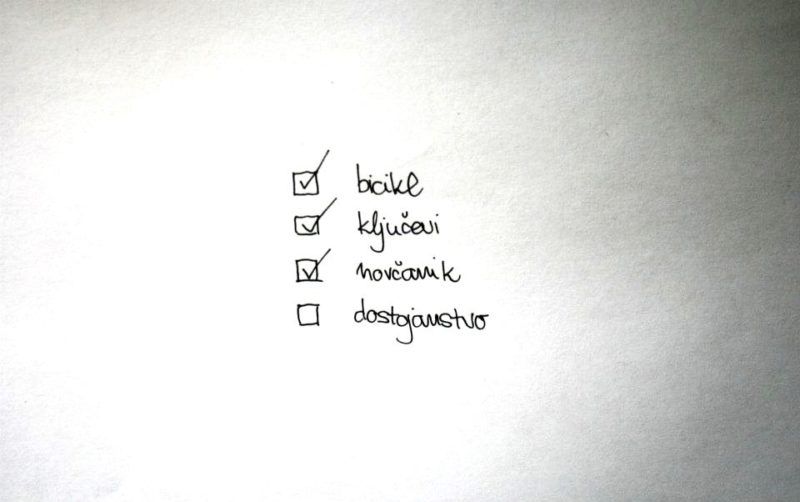 ☑ bicikl
☑ ključevi
☑ novčanik
☐ dostojanstvo